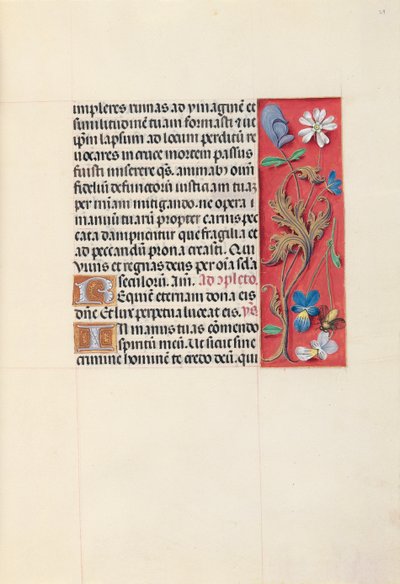 impleres ruinas ad ymaginē et
similitudinē tuam formasti & ue
lapsum ad locum perditū re
uocares in cruce mortem passus
fuisti miserere qs. animab; oīm
fidelium defunctorū iusticiam tuaz
mitigando. ne opera
manuū tuarū propter carnis pec
cata dampnentur que fragilia et
ad peccandū prona creasti. Qui
uiuis et regnas deus per oīa
seculorum. Am. Ad cōpleto.
Requiem eternam dona eis
dn̄e Et lux perpetua luceat eis. ps
In manus tuas cōmendo
spiritū meū. Ut sicut sine
crimine hominē te credo deū. qui